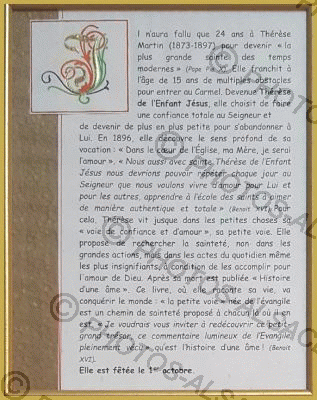 I n'aura fallu que 24 ans à Thérèse
Martin (1873-1897) pour devenir « la
plus grande sainte des temps
modernes » (Pape Pie X). Elle franchit à
l'âge de 15 ans de multiples obstacles
pour entrer au Carmel. Devenue Thérèse
de l'Enfant Jésus, elle choisit de faire
une confiance totale au Seigneur et
de devenir de plus en plus petite pour s'abandonner à
Lui. En 1896, elle découvre le sens profond de sa
vocation : « Dans le cœur de l'Église, ma Mère, je serai
l'amour ». « Nous aussi avec Thérèse de l'Enfant
Jésus nous devrions pouvoir répéter chaque jour au
Seigneur que nous voulons vivre d'amour pour Lui et
pour les autres, apprendre à l'école des saints à aimer
de manière authentique et totale » (Benoit XVI). Pour
cela, Thérèse vit jusque dans les petites choses sa
« voie de confiance et d'amour », sa petite voie. Elle
propose de chercher la sainteté, non dans les
grandes actions, mais dans les actes du quotidien même
les plus insignifiants, à condition de les accomplir pour
l'amour de Dieu. Après sa mort est publiée « Histoire
d'une âme ». Ce livre, où elle raconte sa vie, va
conquérir le monde : « la petite voie » de l'évangile
est un chemin de sainteté proposé à chacun là où il
est. « Je voudrais vous inviter à redécouvrir ce petit
grand trésor, ce commentaire lumineux de l'Evangile
pleinement vécu » qu'est l'histoire d'une âme ! (Benoit
XVI).
Elle est fêtée le 1er octobre.
© PHOTOS-ALSACE